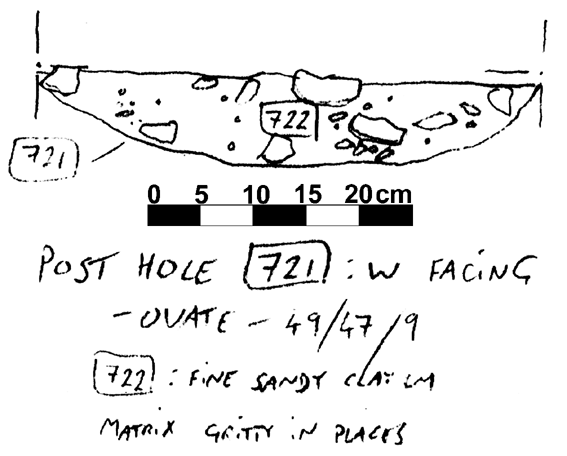 722
721
0 5 10 15 20 cm
POST HOLE 721 : W FACING
- OVATE - 49/47/9
722 : FINE SANDY CLAY LM
MATRIX GRITTY IN PLACES